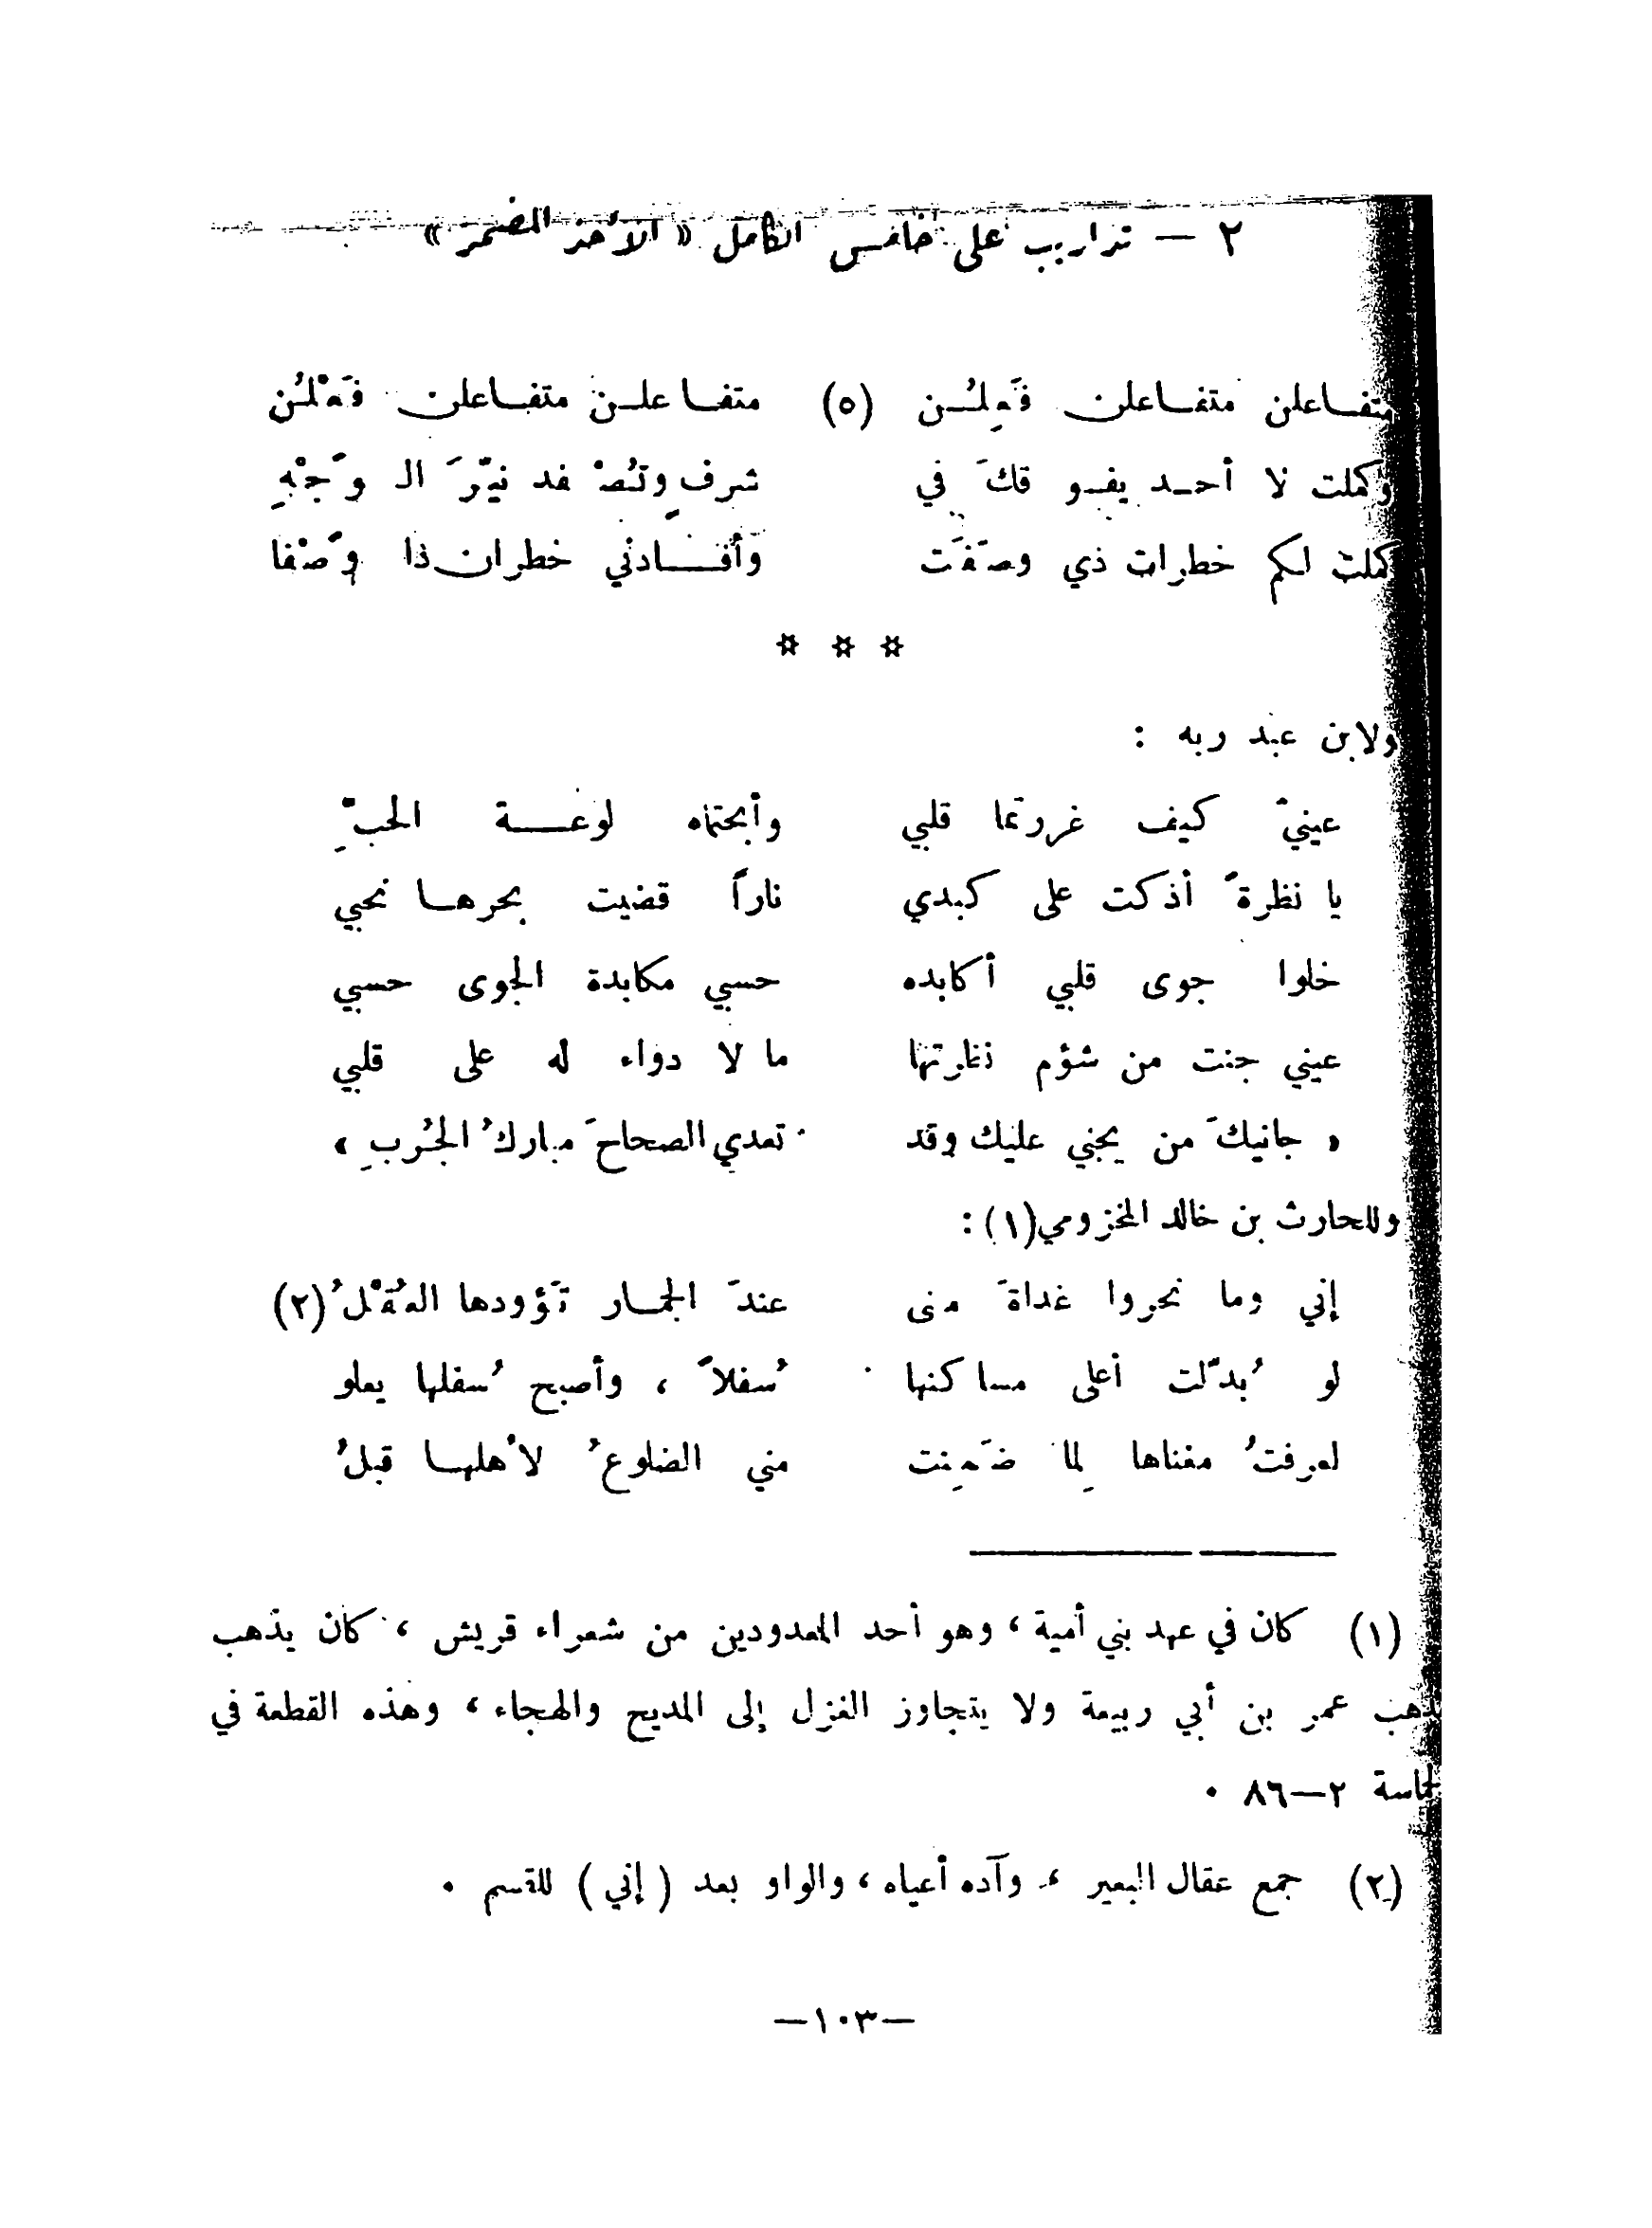 ٢ — تداريب على خامس الكامل « الأحذ المضمر »
متفاعلن متفاعلن فَعِلُن (٥) متفاعلن متفاعلن فَعْلُن
وكملت لا أحد يفو قكَ في شرفٍ وتنُصْ فد نيّرَ ال وَجْهِ
كملت لكم خطرات ذي وصَفَت وأفادني خطران ذا وَصْفا
* * *
ولابن عبد ربه :
عينيّ كيف غررتما قلبي وأبحتماه لوعة الحبّ
يا نظرةً أذكت على كبدي ناراً قضيت بحرها نحبي
خلوا جوى قلبي أكابده حسبي مكابدة الجوى حسبي
عيني جنت من شؤم نظرتها ما لا دواء له على قلبي
« جانيكَ من يجني عليك وقد تعدي الصحاحَ مباركُ الجُربِ »
وللحارث بن خالد المخزومي(١) :
إني وما نحروا غداةَ منى عندَ الجمار تَؤودها العُقْلُ (٢)
لو بُدّلت أعلى مساكنها سُفلاً ، وأصبح سُفلها يعلو
لعرفتُ مغناها لِما ضَمِنت مني الضلوعُ لأهلها قبلُ
(١) كان في عهد بني أمية ، وهو أحد المعدودين من شعراء قريش ، كان يذهب
مذهب عمر بن أبي ربيعة ولا يتجاوز الغزل إلى المديح والهجاء ، وهذه القطعة في
الحماسة ٢—٨٦ .
(٢) جمع عقال البعير ، وآده أعياه ، والواو بعد ( إني ) للقسم .
—١٠٣—